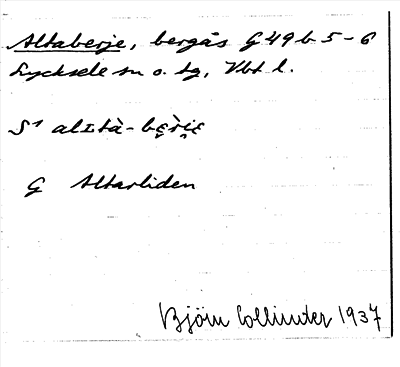 Altaberje, bergås G49b 5-6
Lycksele sn o. tg, Vbt l.
S¹ alɪtà-bę̀rìe
G Altarliden
Björn Collinder 1937